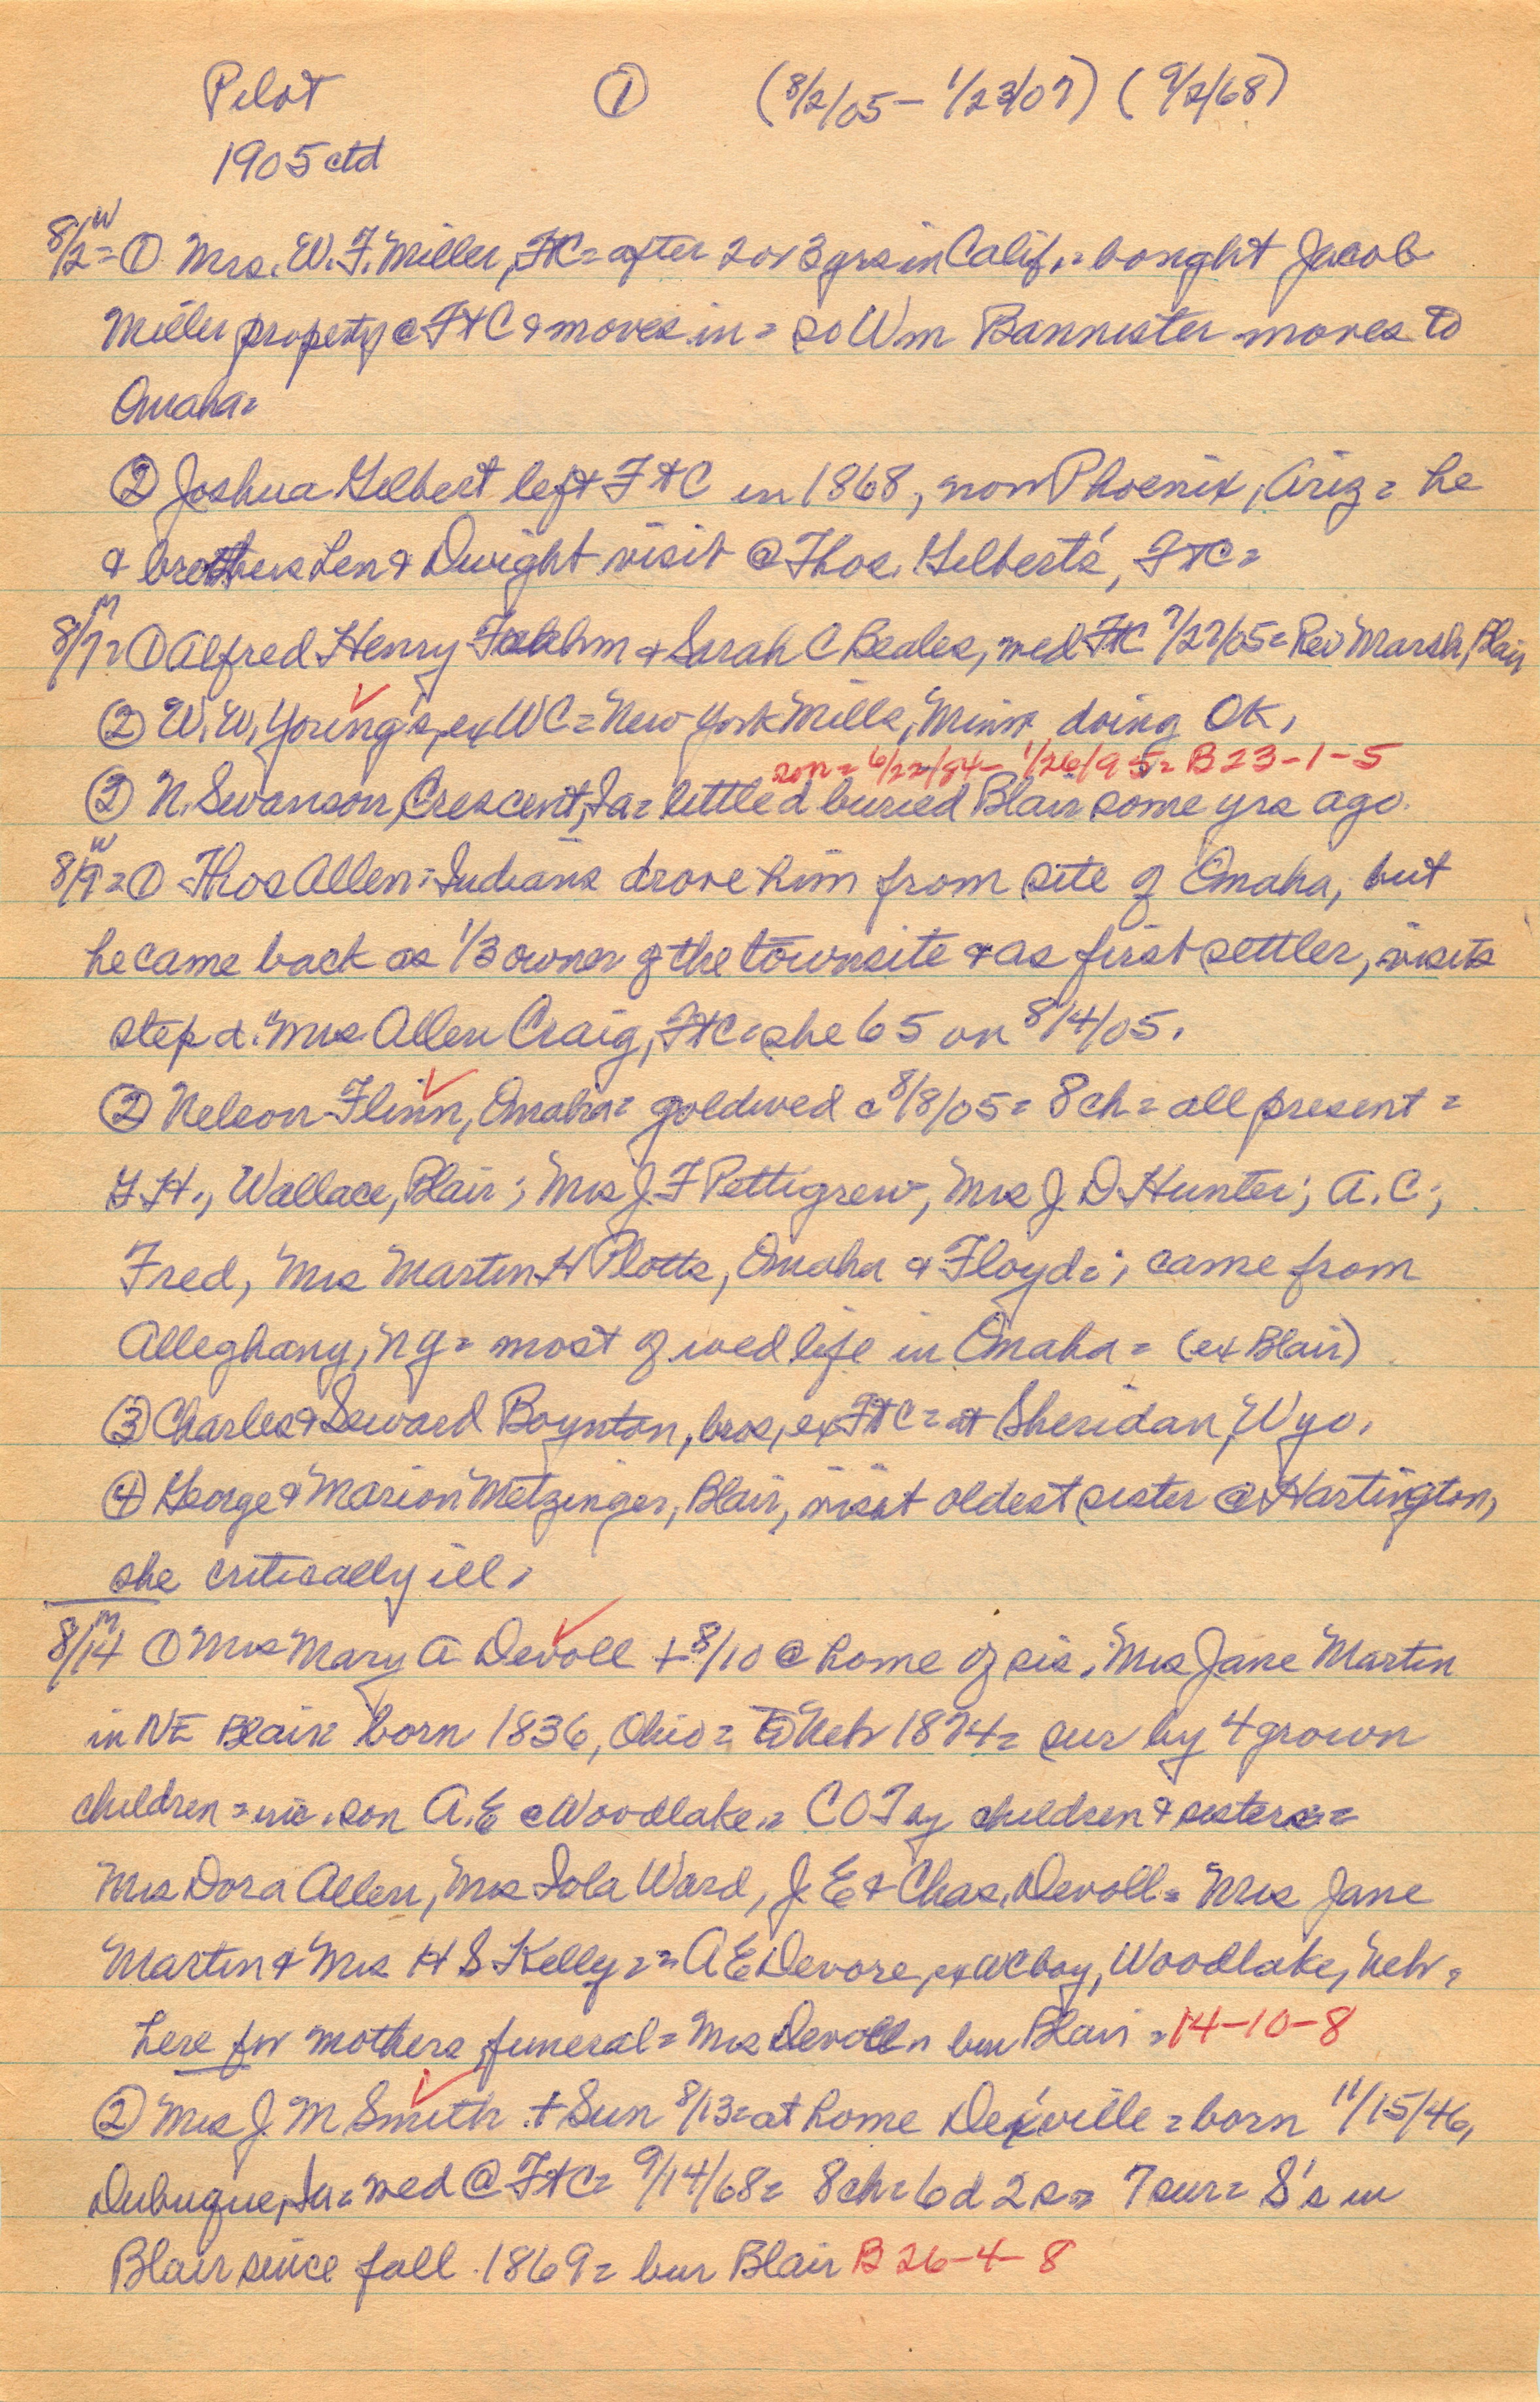 Pilot ① (8/2/05 – 1/23/07) (9/2/68)
1905 ctd
8/2 W = ① Mrs. W. F. Miller, FtC = after 2 or 3 yrs in Calif., = bought Jacob
Miller property @ FtC & moves in = so Wm Bannister moves to
Omaha =
② Joshua Gilbert left FtC in 1868, now Phoenix, Ariz = he
& brothers Len & Dwight visit @ Thos. Gilbert's, FtC =
8/7 M = ① Alfred Henry & Sarah C Beales, wed FtC 7/27/05 = Rev Marsh, Blair
② W. W. Young's, ex WC = New York Mills, Minn doing OK.
son = 6/22/84 – 1/26/95 = B 23-1-5
② N. Swanson, Crescent, Ia = little d buried Blair some yrs ago.
8/9 W = ① Thos Allen = Indians drove him from site of Omaha, but
he came back as 1/3 owner of the townsite & as first settler, visits
step d. Mrs. Allen Craig, FtC = she 65 on 8/4/05.
② Nelson Flinn, Omaha = goldwed @ 8/8/05 = 8 ch = all present =
G. H., Wallace, Blair; Mrs J. F Pettigrew, Mrs J. D. Hunter; A. C.,
Fred, Mrs Martin H Plotts, Omaha & Floyd; came from
Alleghany, NY = most of wed life in Omaha = (ex Blair)
③ Charles & Seward Boynton, bros, ex FtC = at Sheridan, Wyo.
④ George & Marion Metzinger, Blair, visit oldest sister @ Hartington,
she critically ill.
8/14 M ① Mrs Mary A Devoll + 8/10 @ home of sis, Mrs Jane Martin
in NE Blair born 1836, Ohio = to Neb 1874 = sur by 4 grown
children = inc. son A. E @ Woodlake = COT by children & sisters =
Mrs Dora Allen, Mrs Iola Ward, J. E & Chas. Devoll = Mrs Jane
Martin & Mrs H S Kelly = = A E Devore, ex WC boy, Woodlake, Neb =
here for mothers funeral = Mrs Devoll bur Blair = 14-10-8
② Mrs J. M Smith + Sun 8/13 = at home Dexville = born 11/15/46,
Dubuque, Ia = wed @ FtC = 9/14/68 = 8 ch = 6 d 2 s = 7 sur = S's in
Blair since fall 1869 = bur Blair B 26-4-8